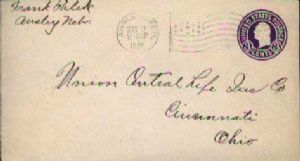 Frank Pilek
Ansley Nebr.
UNITED STATES POSTAGE
3 CENTS 3
Union Central Life Ins Co
Cincinnati
Ohio